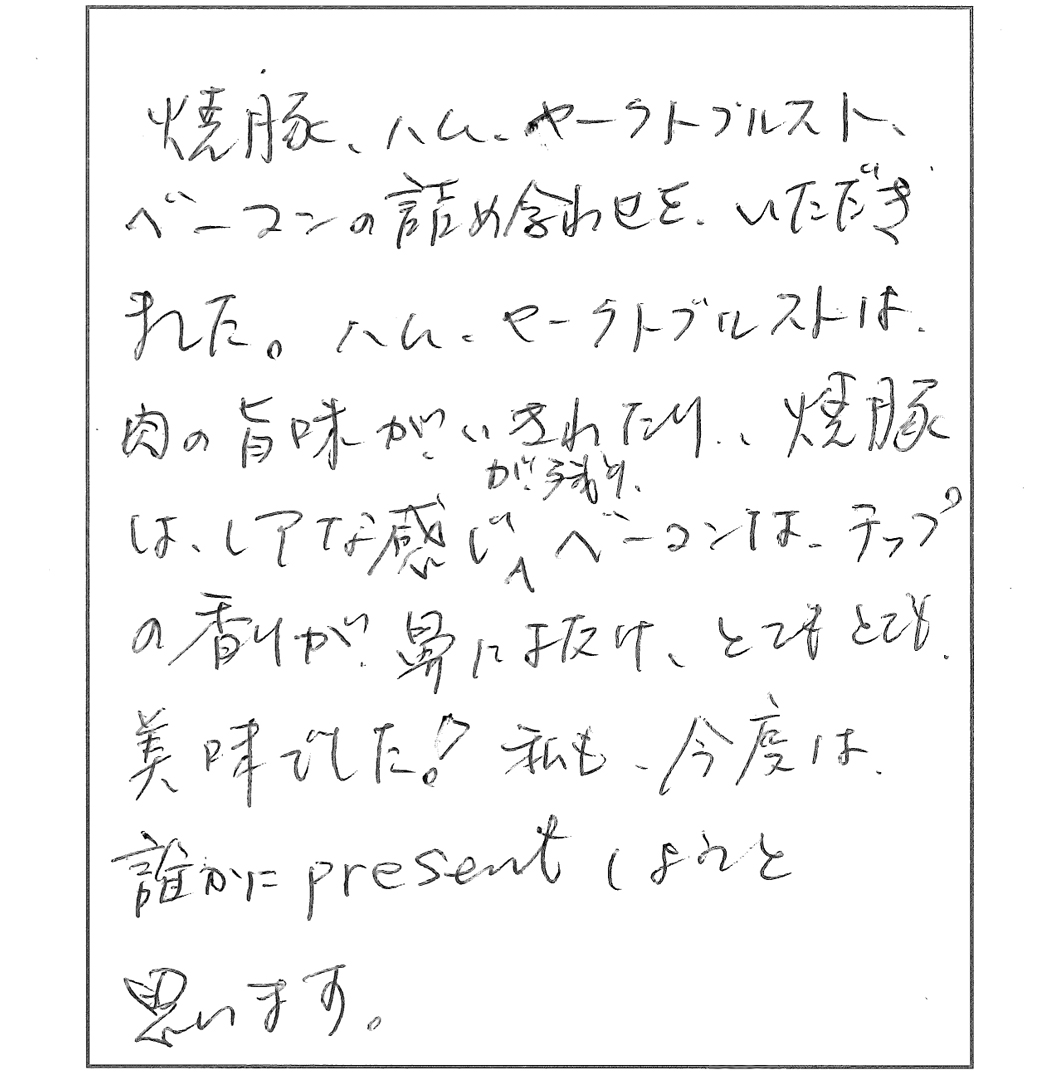 焼豚、ハム、ヤーラトブルスト、
ベーコンの詰め合わせを、いただき
ました。ハム、ヤーラトブルストは、
肉の旨味がいきわたり、、焼豚
は、レアな感じが残り、ベーコンは、チップ
の香りが鼻によ抜け、とてもとても
美味でした!私も、今度は、
誰かにpresentしようと
思います。